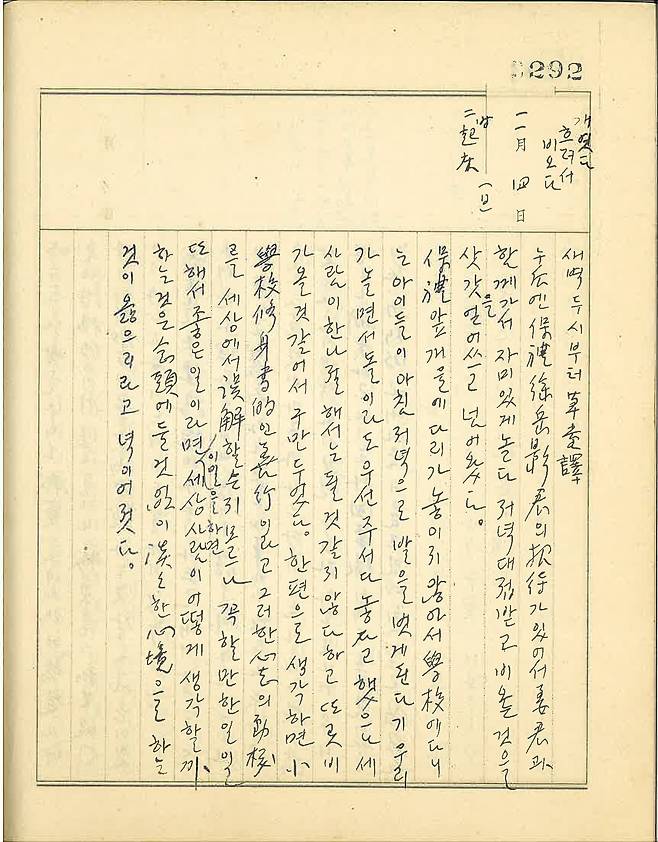 8292
개엿다
흐려서
비오다
一一月 四日
二起床
(日)
새벽 두시부터 草壺譯
午后엔 保禮 徐岳影君의 招待가 있어서 姜君과
함께 가서 자미있게 놀다 저녁대접받고 비 올 것을
삿갓을 얻어쓰고 넘어왔다。
保禮앞 개울에 다리가 놓이지 않아서 學校에 다니
는 아이들이 아침 저녁으로 발을 벗게 된다기 우리
가 놀면서 돌이라도 우선 주서다 놓자고 했으나 세
사람이 한나절 해서는 될 것 같지 않다하고 또 곳 비
가 올 것 같어서 구만두었다。 한편으로 생각하면 小
學校修身書的인 善行이라고 그러한 心志의 動機
를 세상에서 誤解할는지 모르나 꼭 할 만한 일 일
또 해서 좋은 일이라면 이일을하면 세상 사람이 어떻게 생각할까、
하는 것은 念頭에 둘 것 없이 淡々한 心境으로 하는
것이 옳으리라고 녁이어젓다。